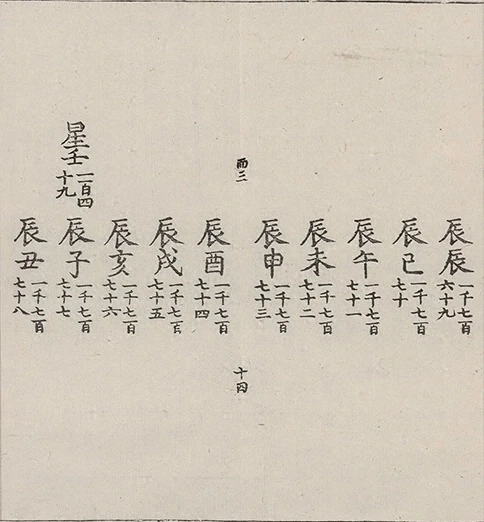 辰辰一千七百六十九
辰巳一千七百七十
辰午一千七百七十一
辰未一千七百七十二
辰申一千七百七十三
而三
十四
辰酉一千七百七十四
辰戌一千七百七十五
辰亥一千七百七十六
星壬一百四十九
辰子一千七百七十七
辰丑一千七百七十八